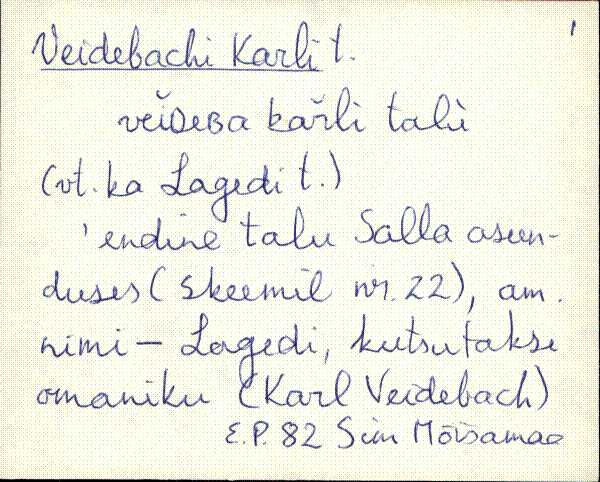 1
Veidebachi Karli t.
veiDEBA kaŕli talù
(vt. ka Lagedi t.)
'endine talu Salla asun-
duses (skeemil nr. 22), am.
nimi – Lagedi, kutsutakse
omaniku (Karl Veidebach)
E.P. 82 Siim Mõisamaa